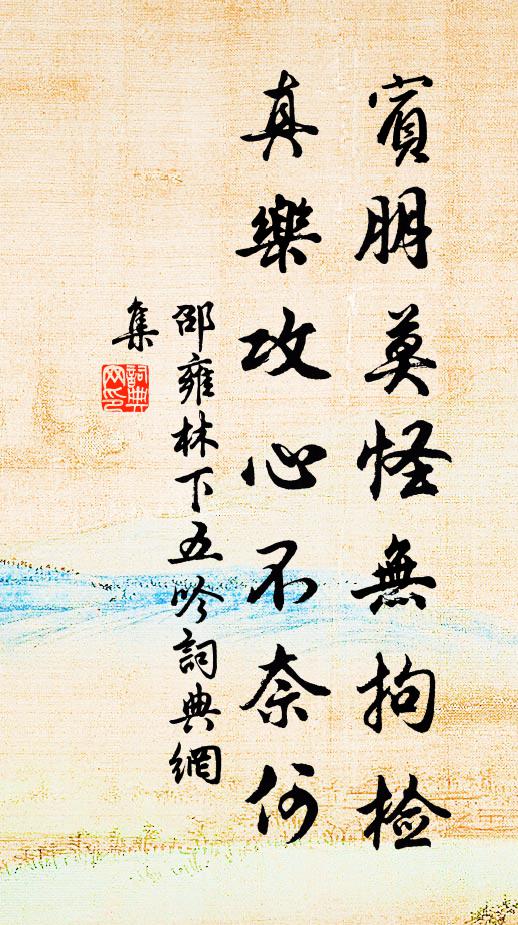 賓朋莫怪無拘檢
真樂攻心不奈何
邵雍林下五吟詞典網
集
詞典
网印